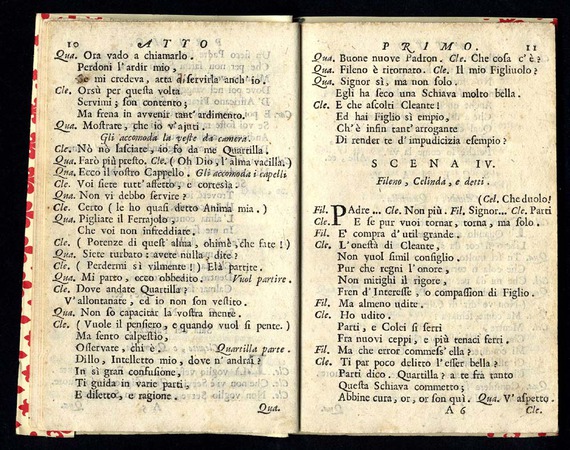 10 ATTO
Qua. Ora vado a chiamarlo.
Perdoni l'ardir mio,
Se mi credeva, atta di servirla anch'io.
Cle. Orsù per questa volta
Servimi; son contento;
Ma frena in avvenir tant'ardimento.
Qua. Mostrate, che io v'ajuti.
Gli accomoda la veste da camera.
Cle. Nò nò lasciate, io fo da me Quartilla.
Qua. Farò più presto. Cle. (Oh Dio, l'alma vacilla.)
Qua. Ecco il vostro Cappello. Gli accomoda i capelli
Cle. Voi siete tutt'affetto, e cortesia.
Qua. Non vi debbo servire?
Cle. Certo (le ho quasi detto Anima mia.)
Qua. Pigliate il Ferrajolo
Che voi non infreddiate.
Cle. (Potenze di quest'alma, ohimè, che fate!)
Qua. Siete turbato: avete nulla, dite?
Cle. (Perdermi sì vilmente!) Elà partite.
Qua. Mi parto, ecco obbedito. Vuol partire.
Cle. Dove andate Quartilla?
V'allontanate, ed io non son vestito.
Qua. Non sò capacitar la vostra mente.
Cle. (Vuole il pensiero, e quando vuol si pente.)
Ma sento calpestio,
Osservate, chi è. Quartilla parte.
Dillo, Intelletto mio, dove n'andrai?
In sì gran confusione,
Ti guida in varie parti,
E diletto, e ragione.
Qua.
PRIMO. 11
Qua. Buone nuove Padron. Cle. Che cosa c'è?
Qua. Fileno è ritornato. Cle. Il mio Figliuolo?
Qua. Signor sì, ma non solo.
Egli ha seco una Schiava molto bella.
Cle. E che ascolti Cleante!
Ed hai Figlio sì empio,
Ch'è infin tant'arrogante
Di render te d'impudicizia esempio?
SCENA IV.
Fileno, Celinda, e detti.
(Cel. Che duolo!
Fil. PAdre... Cle. Non più. Fil. Signor... Cle. Parti
Cle. E se pur vuoi tornar, torna, ma solo.
Fil. E' compra d'util grande.
Cle. L'onestà di Cleante,
Non vuol simil consiglio.
Pur che regni l'onore,
Non mitighi il rigore,
Fren d'Interesse, o compassion di Figlio.
Fil. Ma almeno udite.
Cle. Ho udito.
Parti, e Colei si serri
Fra nuovi ceppi, e più tenaci ferri.
Fil. Ma che error commess'ella?
Cle. Ti par poco delitto l'esser bella?
Parti dico. Quartilla? a te fra tanto
Questa Schiava commetto;
Abbine cura, or, or son quì. Qua. V'aspetto.
A 6 Cle.